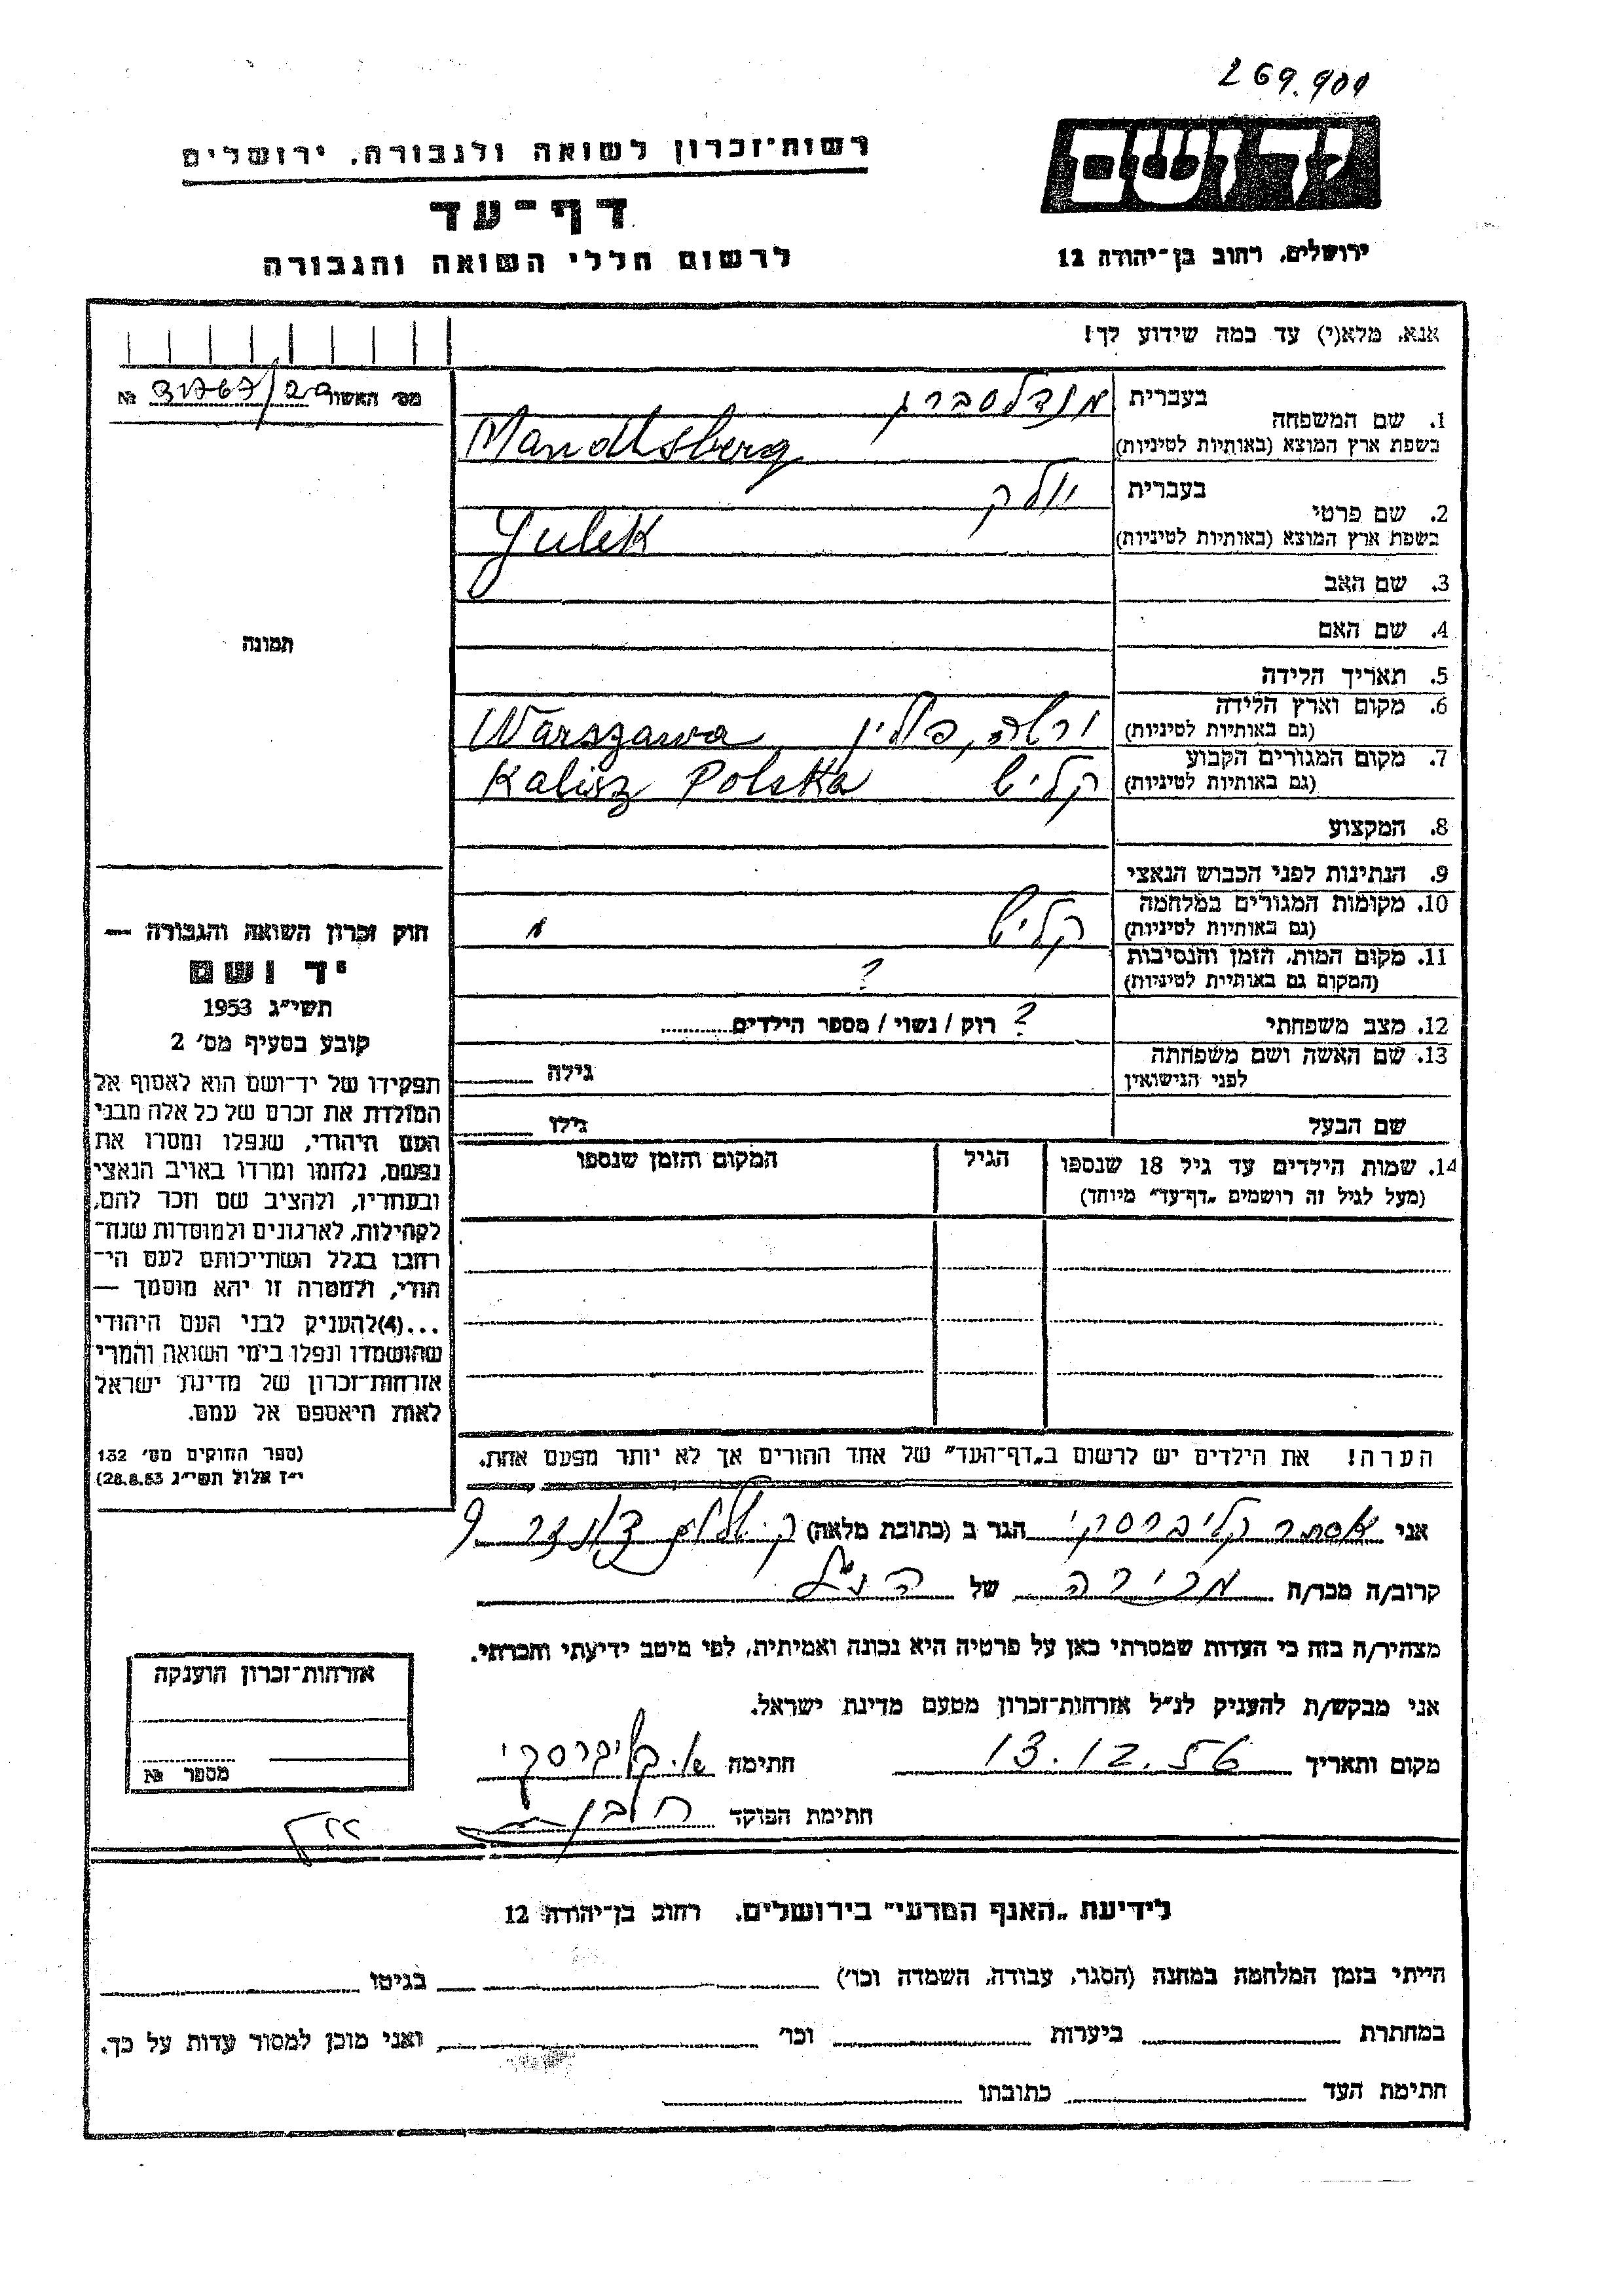 269.900
רשות־זכרון לשואה ולגבורה, ירושלים
יד ושם
דף־עד
לרשום חללי השואה והגבורה
ירושלים, רחוב בן־יהודה 12
אנא, מלא(י) עד כמה שידוע לך!
מס׳ האשור 31767/29 №
1. שם המשפחה
בעברית מנדלסברג
בשפת ארץ המוצא (באותיות לטיניות) Mandlsberg
2. שם פרטי
בעברית יולק
בשפת ארץ המוצא (באותיות לטיניות) Julek
3. שם האב
4. שם האם
5. תאריך הלידה
6. מקום וארץ הלידה
(גם באותיות לטיניות) ורשה, פולין Warszawa
7. מקום המגורים הקבוע
(גם באותיות לטיניות) קליש Kalisz Polska
8. המקצוע
9. הנתינות לפני הכבוש הנאצי
10. מקומות המגורים במלחמה
(גם באותיות לטיניות) קליש "
11. מקום המות, הזמן והנסיבות
(המקום גם באותיות לטיניות) ?
12. מצב משפחתי ? רוק / נשוי / מספר הילדים
13. שם האשה ושם משפחתה
לפני הנישואין גילה
שם הבעל גילו
14. שמות הילדים עד גיל 18 שנספו הגיל המקום והזמן שנספו
(מעל לגיל זה רושמים „דף־עד״ מיוחד)
הערה! את הילדים יש לרשום ב„דף־העד״ של אחד ההורים אך לא יותר מפעם אחת.
תמונה
חוק זכרון השואה והגבורה —
יד ושם
תשי״ג 1953
קובע בסעיף מס׳ 2
תפקידו של יד־ושם הוא לאסוף אל
המולדת את זכרם של כל אלה מבני
העם היהודי, שנפלו ומסרו את
נפשם, נלחמו ומרדו באויב הנאצי
ובעוזריו, ולהציב שם וזכר להם,
לקהילות, לארגונים ולמוסדות שנח־
רבו בגלל השתייכותם לעם הי־
הודי, ולמטרה זו יהא מוסמך —
...(4)להעניק לבני העם היהודי
שהושמדו ונפלו בימי השואה והמרי
אזרחות־זכרון של מדינת ישראל
לאות היאספם אל עמם.
(ספר החוקים מס׳ 132
י״ז אלול תשי״ג 28.8.53)
אני אסתר קליברסקי הגר ב (כתובת מלאה) 9
קרוב/ה מכר/ה מכירה של הנ״ל
מצהיר/ה בזה כי העדות שמסרתי כאן על פרטיה היא נכונה ואמיתית, לפי מיטב ידיעתי והכרתי.
אני מבקש/ת להעניק לנ״ל אזרחות־זכרון מטעם מדינת ישראל.
מקום ותאריך 13.12.56 חתימה א. קליברסקי
חתימת הפוקד
אזרחות־זכרון הוענקה
מספר №
לידיעת „האגף המדעי״ בירושלים, רחוב בן־יהודה 12
הייתי בזמן המלחמה במחנה (הסגר, עבודה, השמדה וכו׳) בגיטו
במחתרת ביערות וכו׳ ואני מוכן למסור עדות על כך.
חתימת העד כתובתו